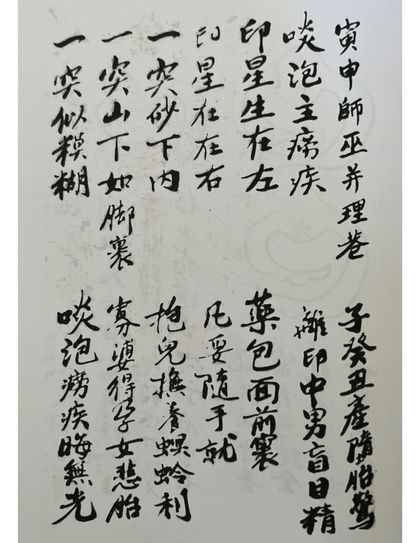 寅申師巫并理巷 子癸丑產墮胎驚
啖泡主癆疾 離印中男盲目精
印星生在左 藥包面前裹
印星在在右 凡妥隨手就
一突砂下內 抱兒撫養螟蛉利
一突山下如脚裹 寡婆得孕女悲胎
一突似糢糊 啖泡癆疾晦無光